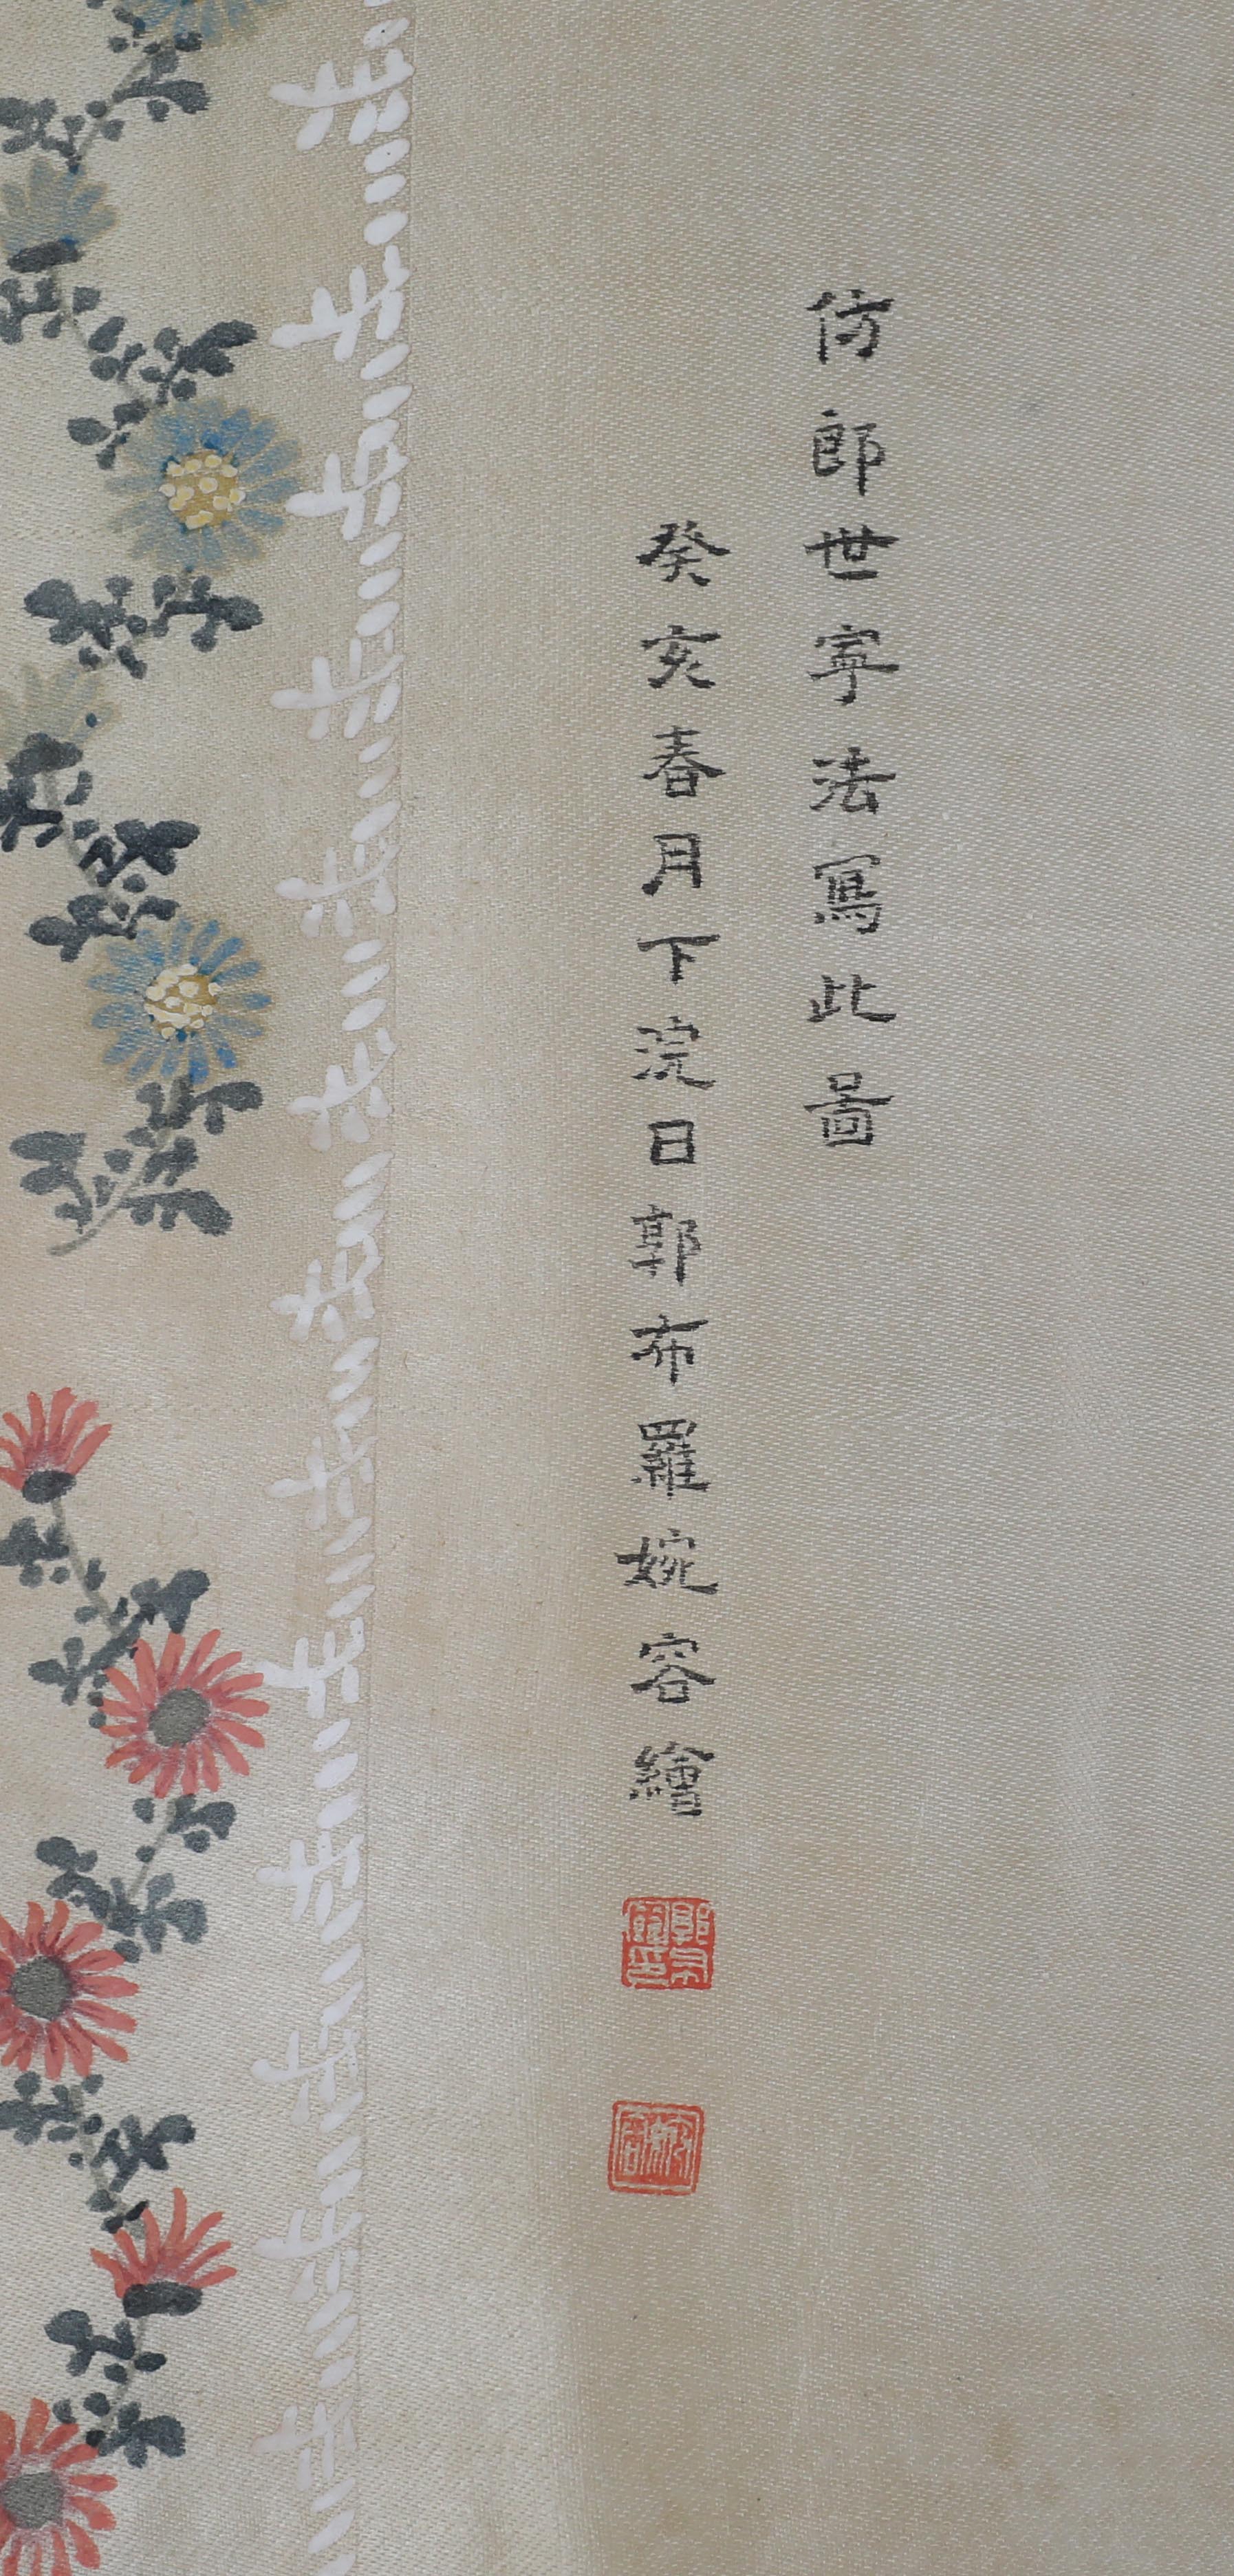 仿郎世寧法寫此圖
癸亥春月下浣日郭布羅婉容繪